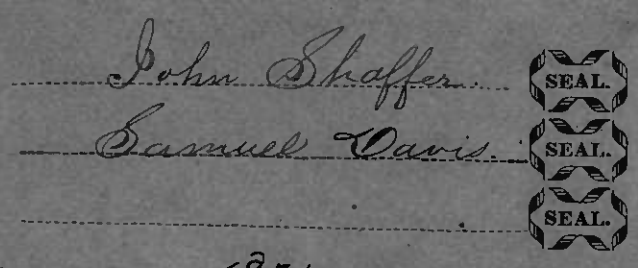 John Shaffer. SEAL.
Samuel Davis. SEAL.
SEAL.